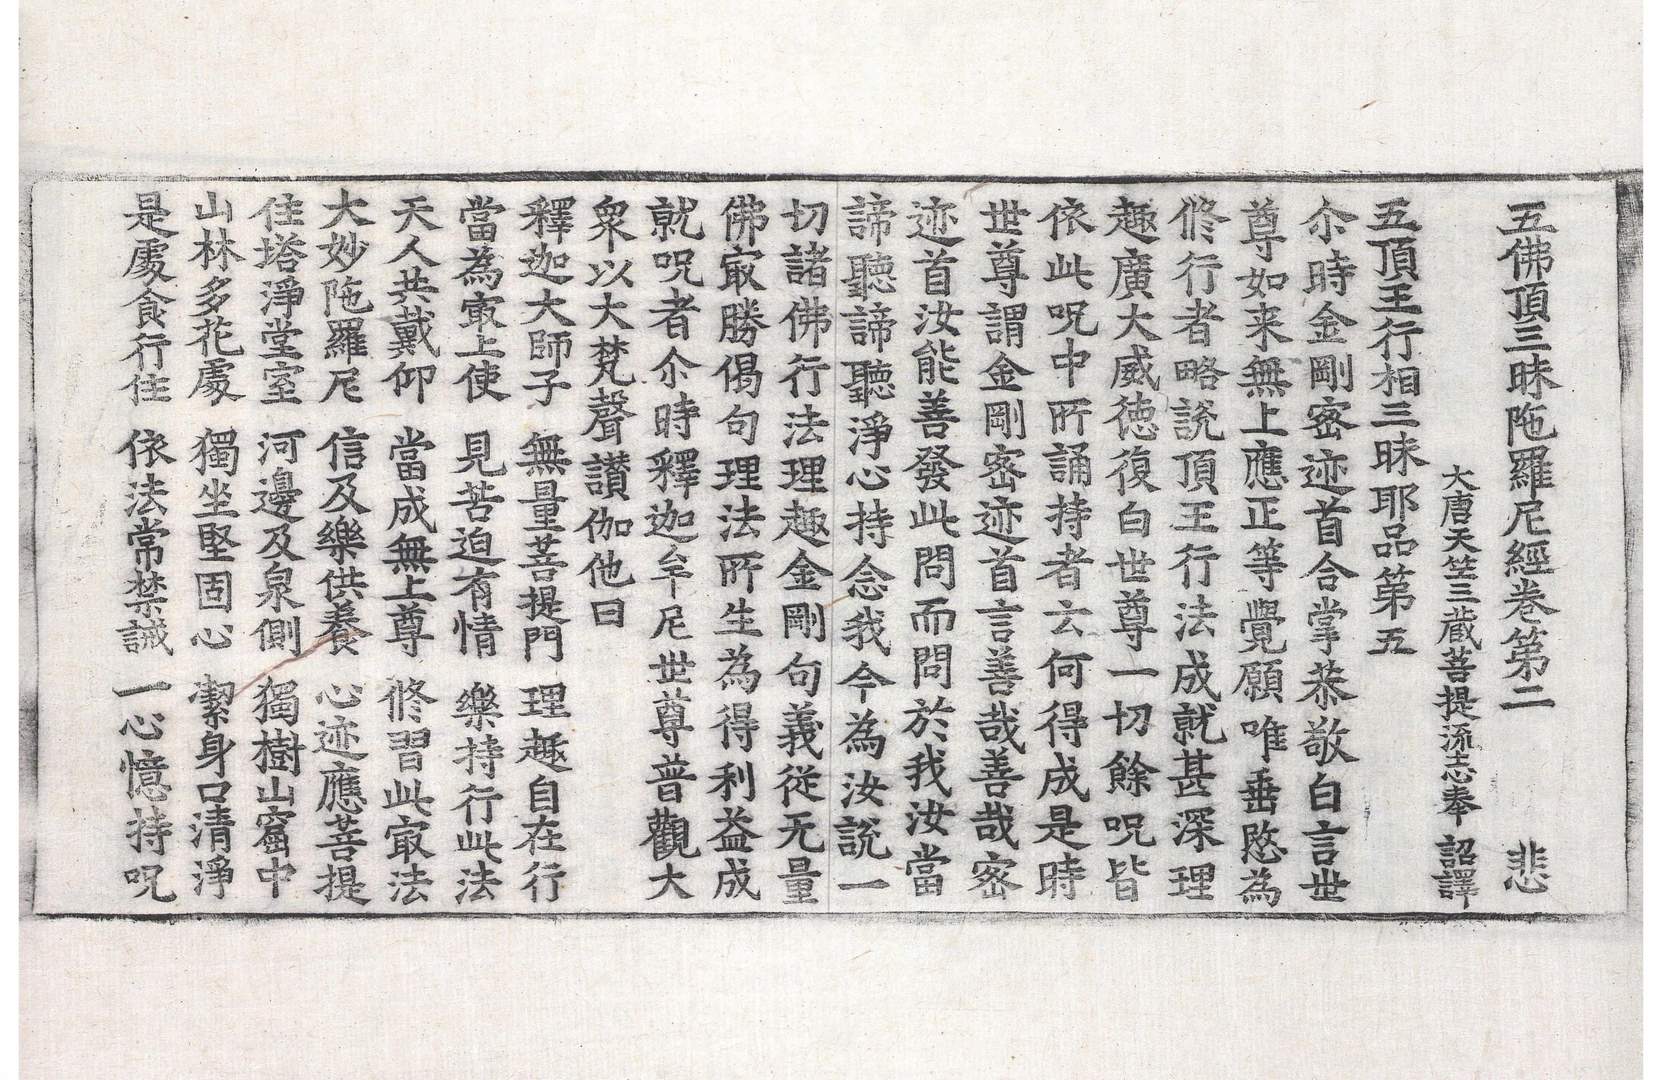 五佛頂三昧陁羅尼經卷第二 悲
大唐天竺三藏菩提流志奉 詔譯
五頂王行相三昧耶品第五
尒時金剛密迹首合掌恭敬白言世
尊如来無上應正等覺願唯垂愍為
修行者略說頂王行法成就甚深理
趣廣大威徳復白世尊一切餘呪皆
依此呪中所誦持者云何得成是時
世尊謂金剛密迹首言善哉善哉密
迹首汝能善發此問而問於我汝當
諦聽諦聽淨心持念我今為汝說一
切諸佛行法理趣金剛句義從无量
佛㝡勝偈句理法所生為得利益成
就呪者尒時釋迦牟尼世尊普觀大
衆以大梵聲讃伽他曰
釋迦大師子 無量菩提門 理趣自在行
當為㝡上使 見苦迫有情 樂持行此法
天人共戴仰 當成無上尊 修習此㝡法
大妙陁羅尼 信及樂供養 心迹應菩提
住塔淨堂室 河邊及泉側 獨樹山窟中
山林多花處 獨坐堅固心 潔身口清淨
是處食行住 依法常禁誡 一心憶持呪